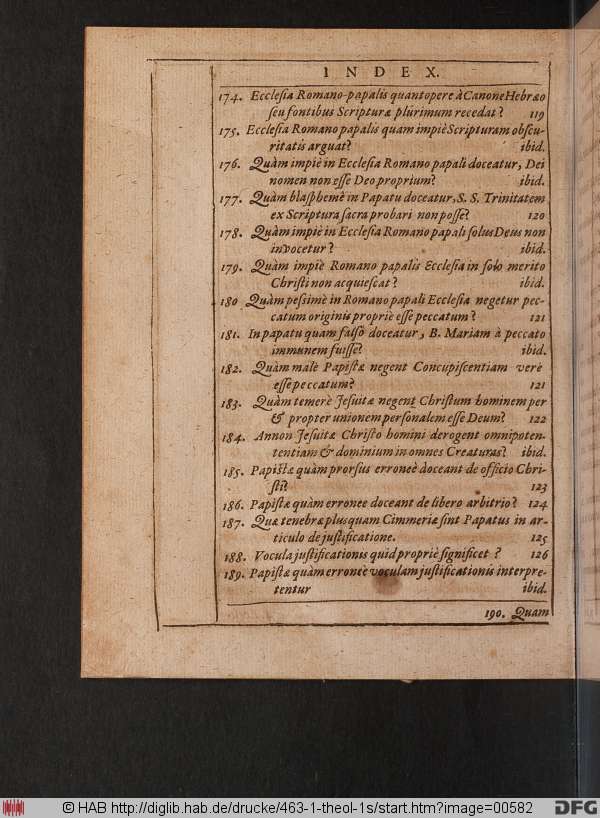 INDEX.
174. Ecclesia Romano-papalis quantopere à Canone Hebræo
seu fontibus Scripturæ plurimum recedat? 119
175. Ecclesia Romano papalis quam impiè Scripturam obscu-
ritatis arguat? ibid.
176. Quàm impiè in Ecclesia Romano papali doceatur, Dei
nomen non esse Deo proprium? ibid.
177. Quàm blasphemè in Papatu doceatur, S. S. Trinitatem
ex Scriptura sacra probari non posse? 120
178. Quàm impiè in Ecclesia Romano papali solus Deus non
invocetur? ibid.
179. Quàm impiè Romano papalis Ecclesia in solo merito
Christi non acquiescat? ibid.
180 Quàm pessimè in Romano papali Ecclesia negetur pec-
catum originis propriè esse peccatum? 121
181. In papatu quam falsò doceatur, B. Mariam à peccato
immunem fuisse? ibid.
182. Quàm malè Papistæ negent Concupiscentiam verè
esse peccatum? 121
183. Quàm temerè Jesuitæ negent Christum hominem per
& propter unionem personalem esse Deum? 122
184. Annon Jesuitæ Christo homini derogent omnipoten-
tentiam & dominium in omnes Creaturas? ibid.
185. Papistæ quàm prorsus erroneè doceant de officio Chri-
sti? 123
186. Papistæ quàm erronee doceant de libero arbitrio? 124
187. Quæ tenebræ plusquam Cimmeriæ sint Papatus in ar-
ticulo de justificatione. 125
188. Vocula justificationis quid propriè significet? 126
189. Papistæ quàm erroneè voculam justificationis interpre-
tentur ibid.
190. Quam
© HAB http://diglib.hab.de/drucke/463-1-theol-1s/start.htm?image=00582
DFG